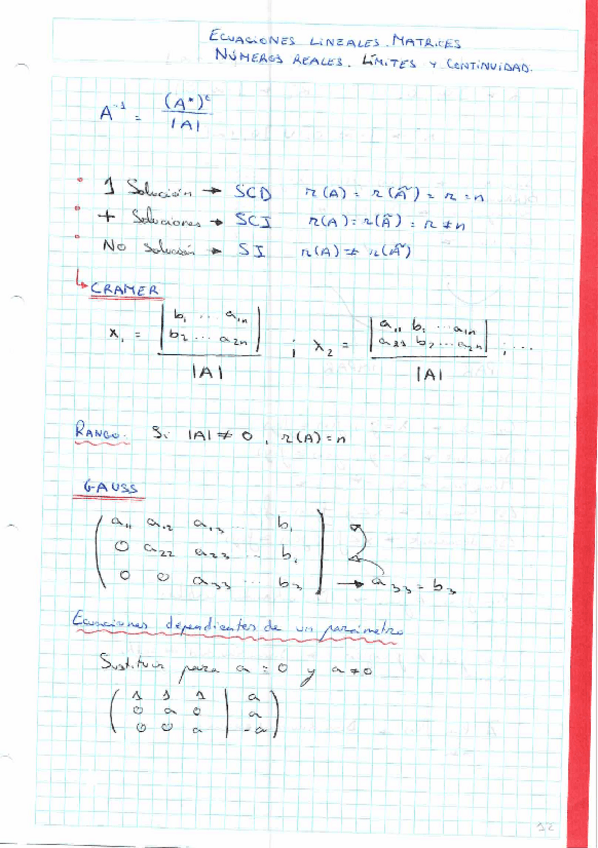 ECUACIONES LINEALES. MATRICES
NÚMEROS REALES. LÍMITES Y CONTINUIDAD.
A⁻¹ = (A*)ᵗ / |A|
• 1 Solución → SCD r(A) = r(Ã) = r = n
• + Soluciones → SCI r(A) = r(Ã) = r ≠ n
• No solución → SI r(A) ≠ r(Ã)
↳ CRAMER
x₁ = |b₁ ... a₁ₙ| ; x₂ = |a₁₁ b₁ ... a₁ₙ| ; ...
|b₂ ... a₂ₙ| |a₂₁ b₂ ... a₂ₙ|
|A| |A|
RANGO: Si |A| ≠ 0, r(A) = n
GAUSS
a₁₁ a₁₂ a₁₃ ... b₁
0 a₂₂ a₂₃ ... b₁
0 0 a₃₃ ... b₃ → a₃₃ = b₃
Ecuaciones dependientes de un parámetro
Sustituir para a = 0 y a ≠ 0
( 1 1 1 | a )
( 0 a 0 | a )
( 0 0 a | -a )
12